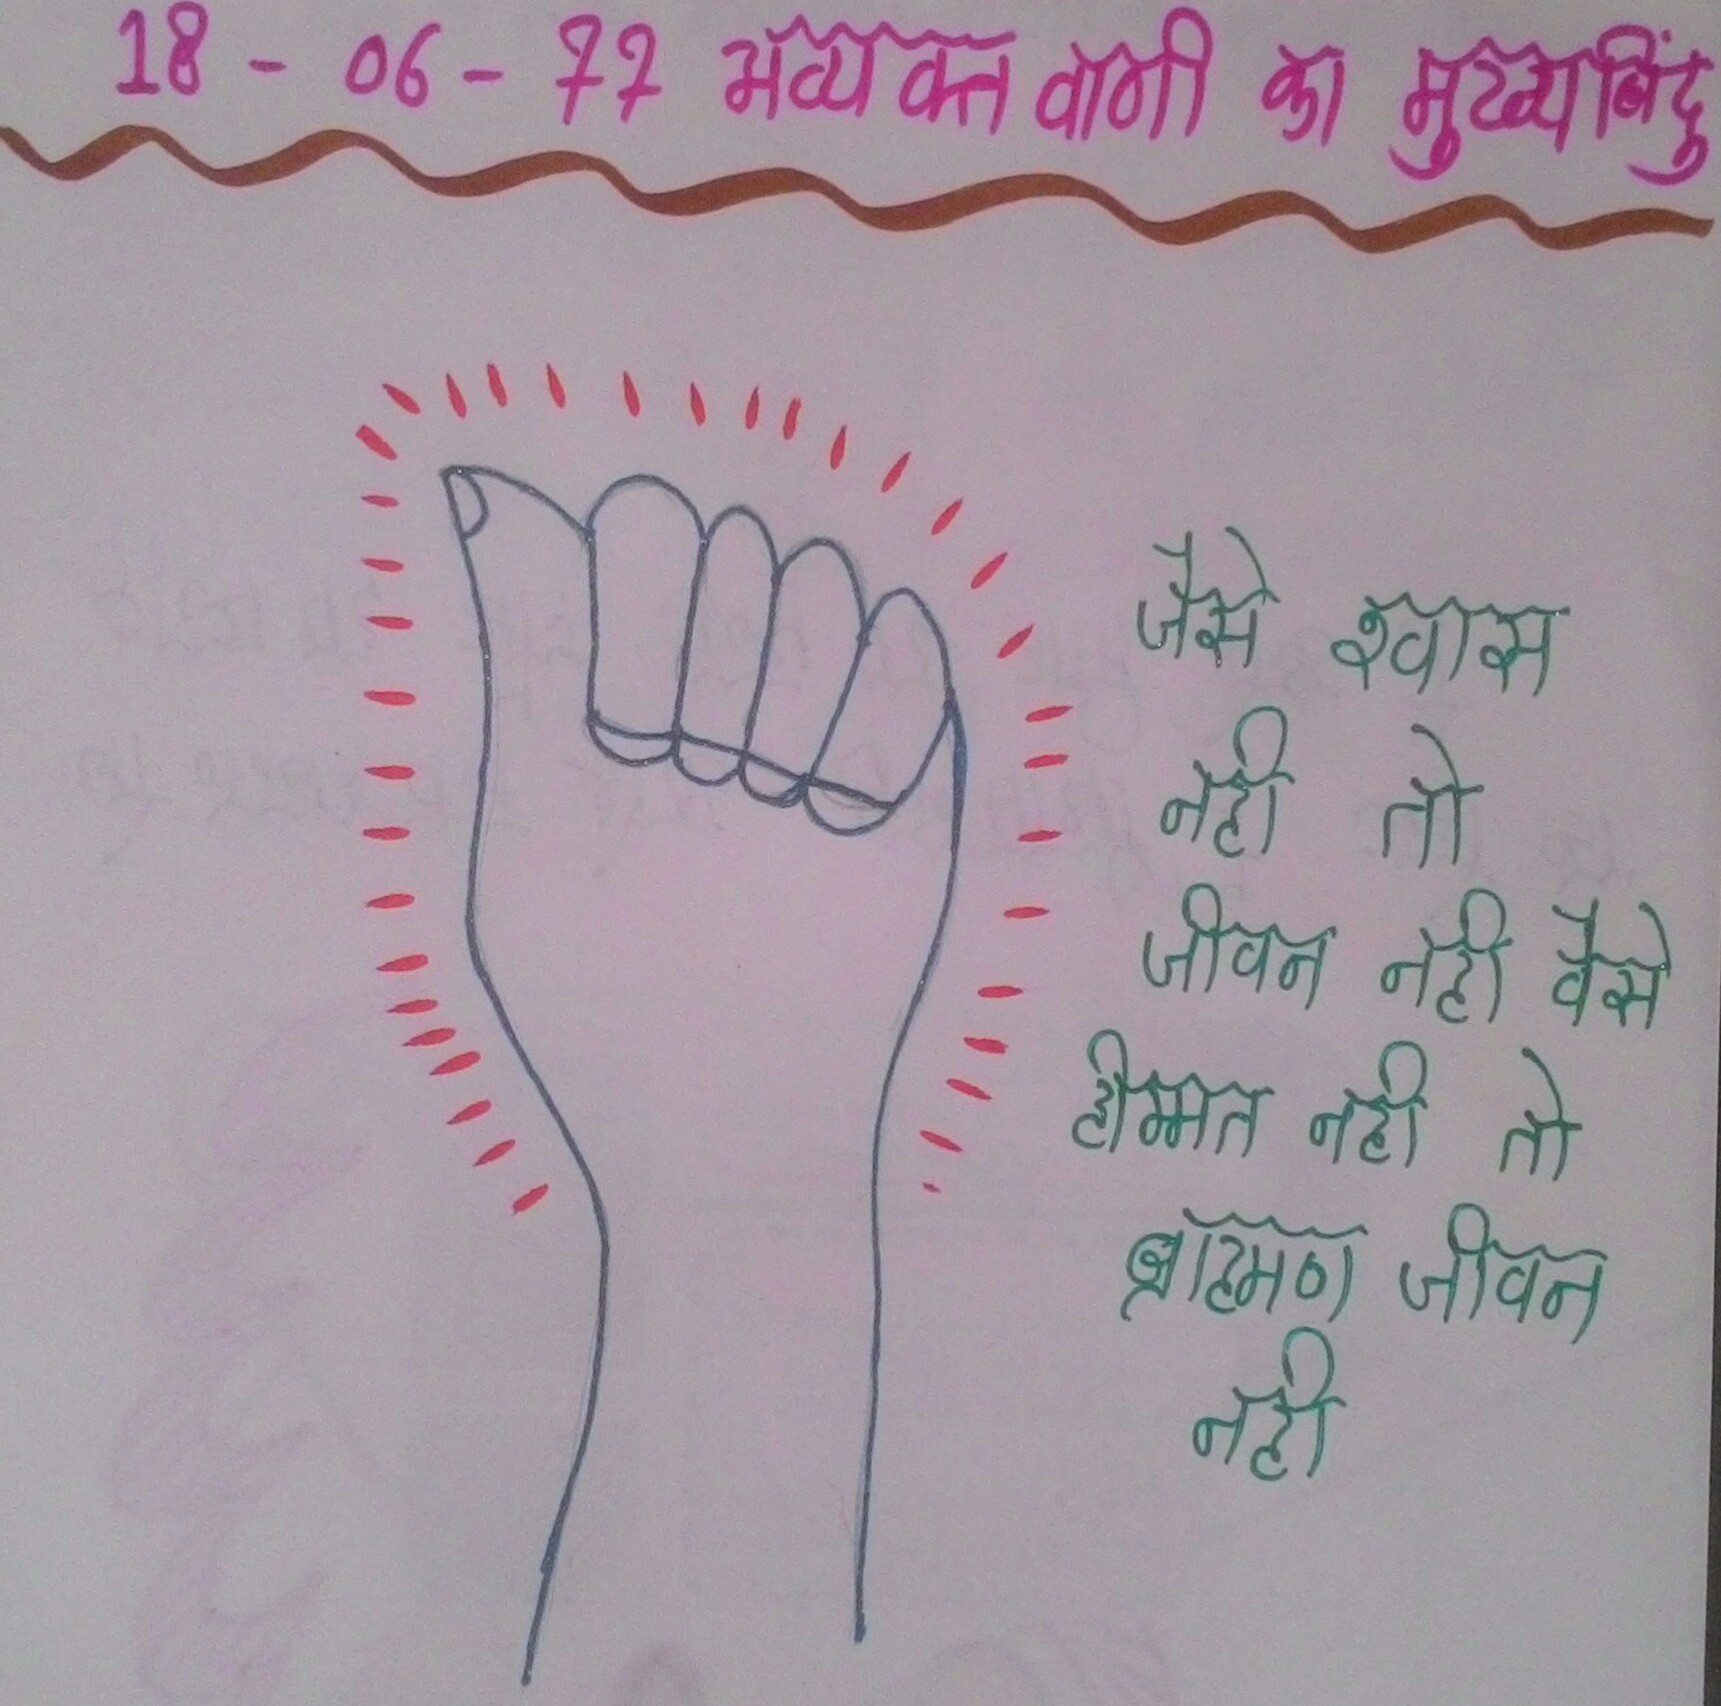 18 - 06 - 77 अव्यक्त वाणी का मुख्य बिंदु
जैसे श्वास
नही तो
जीवन नही वैसे
हीम्मत नही तो
ब्राह्मण जीवन
नही